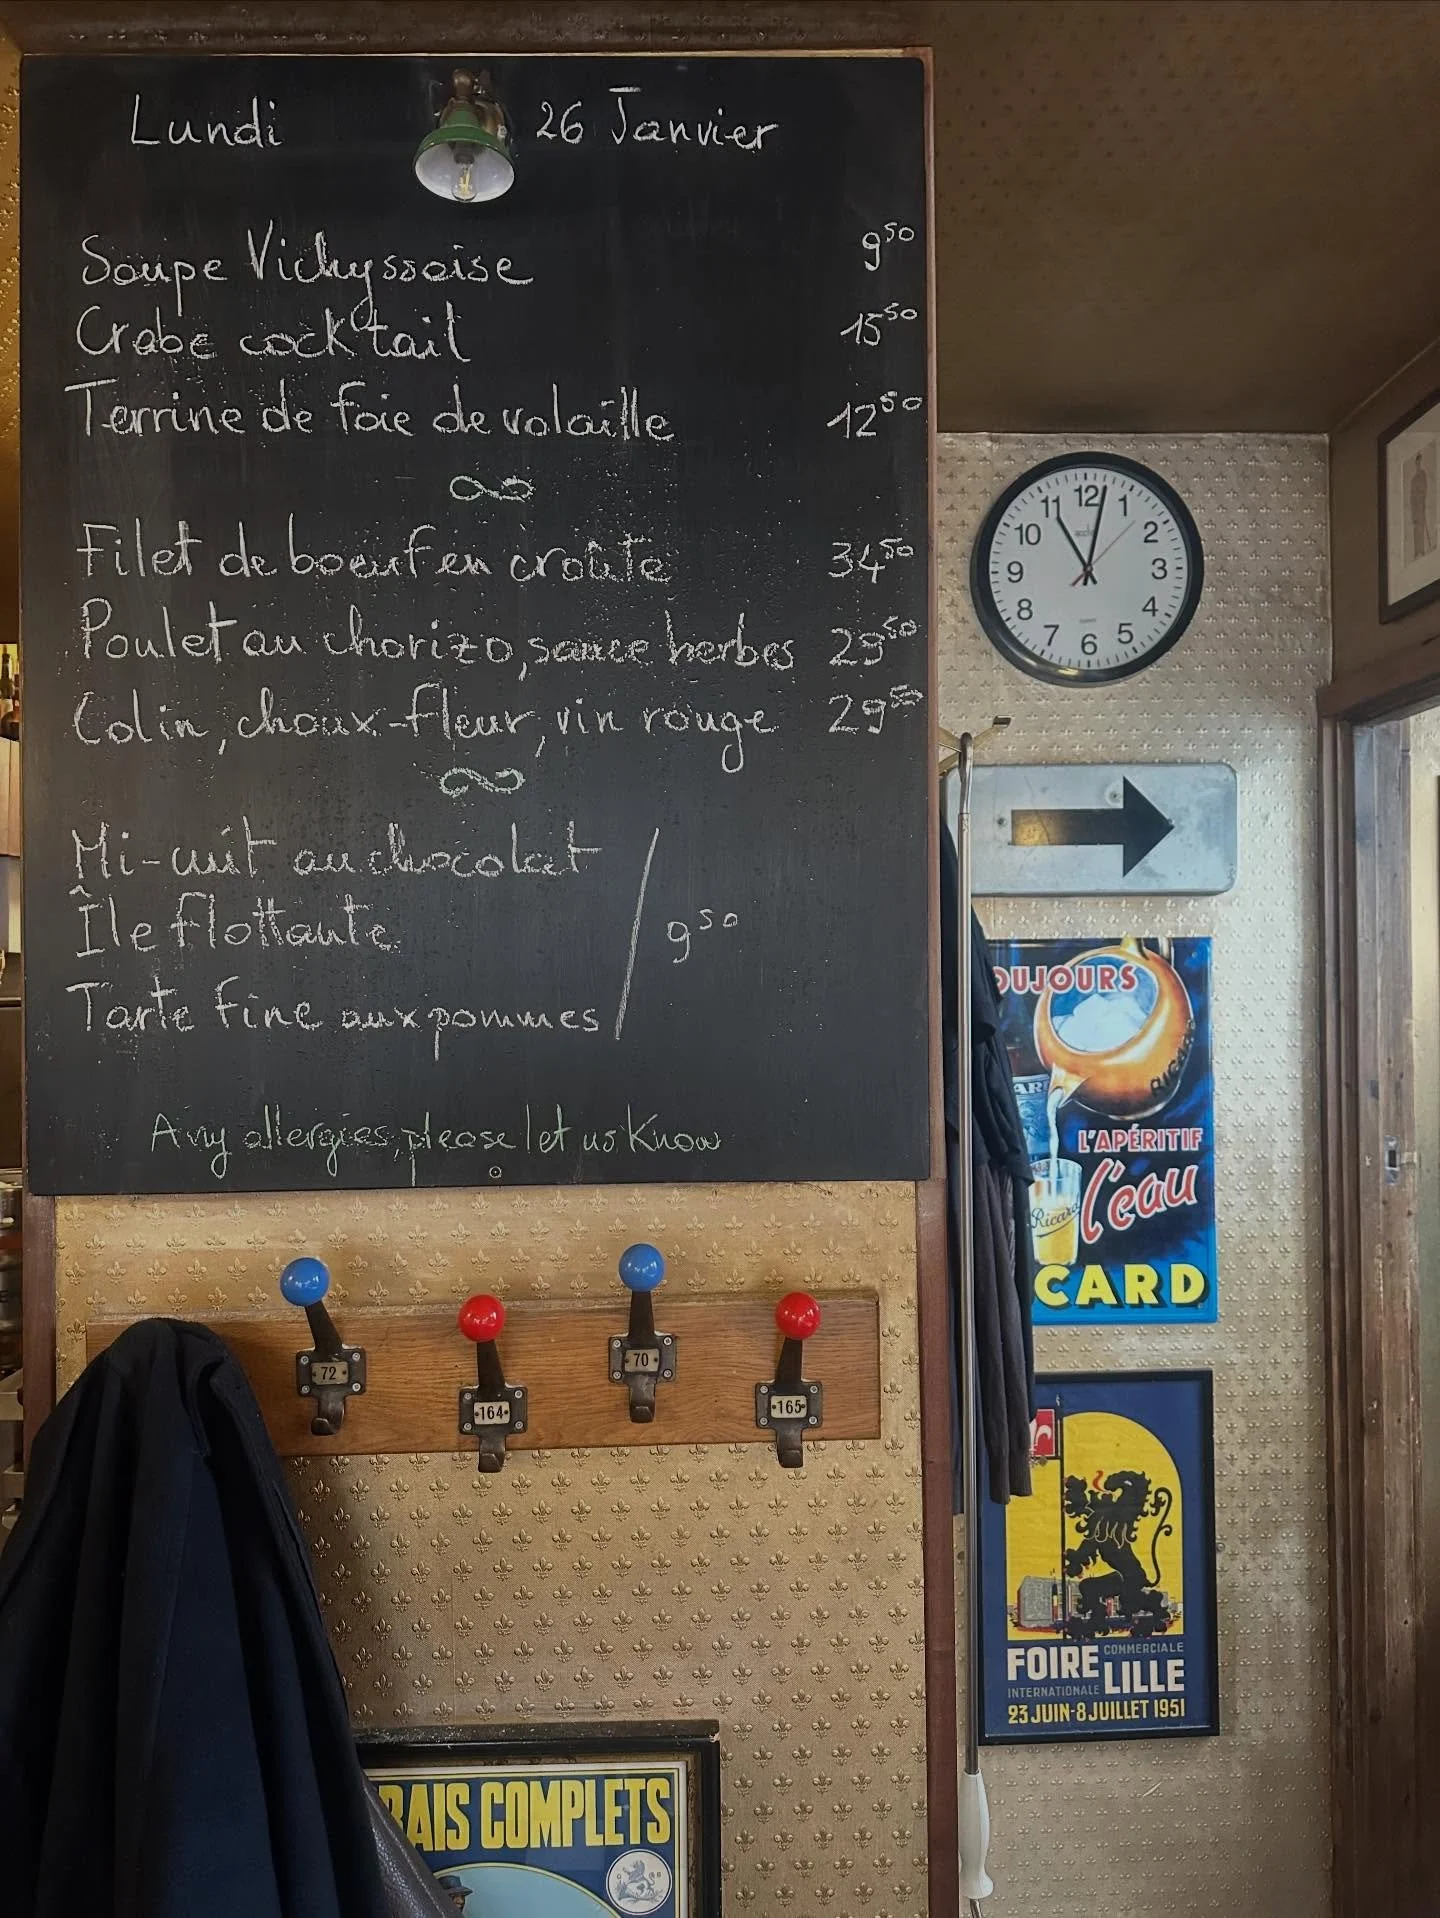 Lundi 26 Janvier
Soupe Vichyssoise 9⁵⁰
Crabe cocktail 15⁵⁰
Terrine de foie de volaille 12⁵⁰
Filet de bœuf en croûte 34⁵⁰
Poulet au chorizo, sauce herbes 29⁵⁰
Colin, choux-fleur, vin rouge 29⁵⁰
Mi-cuit au chocolat
Île flottante 9⁵⁰
Tarte fine aux pommes
Any allergies, please let us know
72
164
70
165
BAIS COMPLETS
12
1
2
3
4
5
6
7
8
9
10
11
OUJOURS
RICARD
L'APÉRITIF
l'eau
Ricard
CARD
FOIRE COMMERCIALE
INTERNATIONALE LILLE
23 JUIN-8 JUILLET 1951